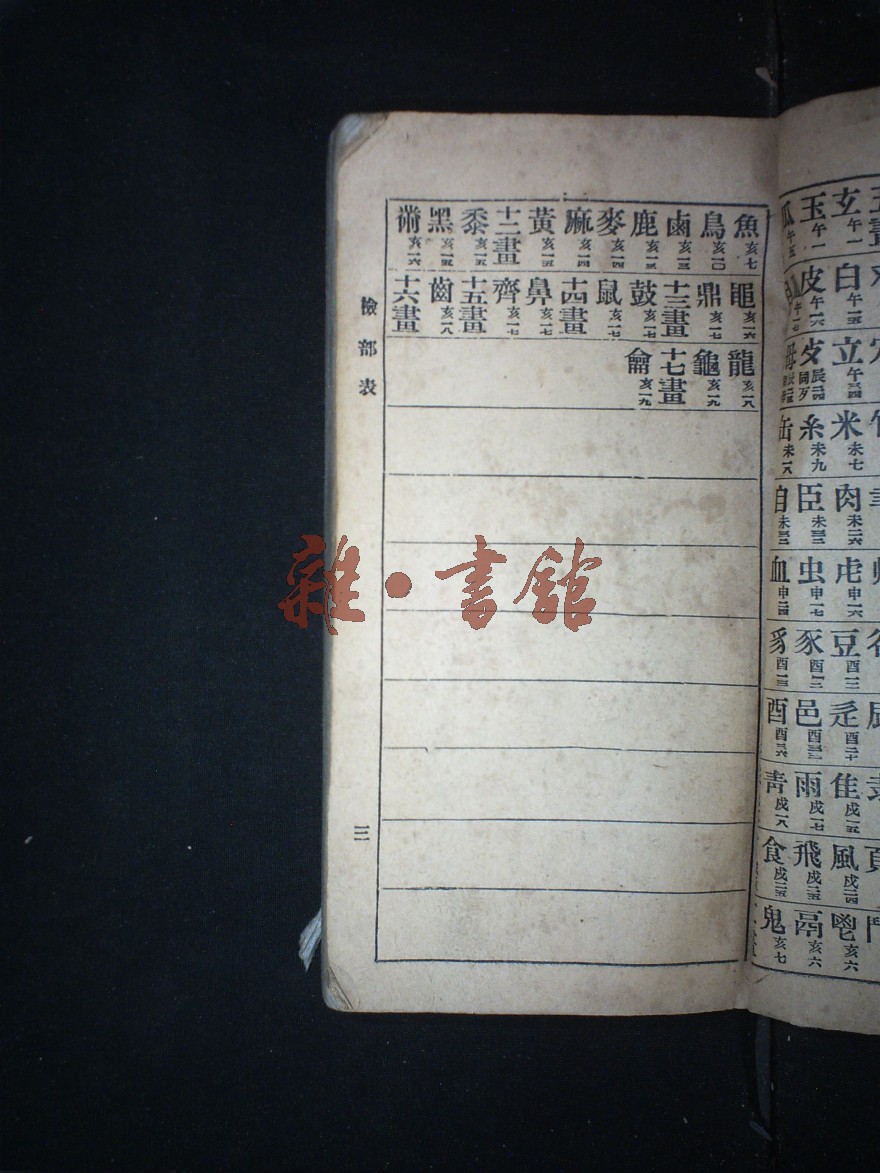 玄午一 玉午一 瓜午五
白午一五 皮午一六
立午二四
米未七 糸未九 缶未一八
肉未二六 臣未三三 自未三三
虍申一六 虫申一七 血申二四
豆酉一二 豕酉一二 豸酉一三
辵 邑 酉
隹戌一五 雨戌一七 青戌一八
風戌二四 飛戌二五 食戌二五
鬯亥六 鬲亥六 鬼亥七
魚亥七 鳥亥一〇 鹵亥一三 鹿亥一三 麥亥一四 麻亥一四 黃亥一五 十二畫 黍亥一五 黑亥一五 黹亥一六
黽亥一六 鼎亥一七 十三畫 鼓亥一七 鼠亥一七 十四畫 鼻亥一七 齊亥一七 十五畫 齒亥一八 十六畫
龍亥一八 龜亥一九 十七畫 龠亥一九
檢部表
三
雜·書館